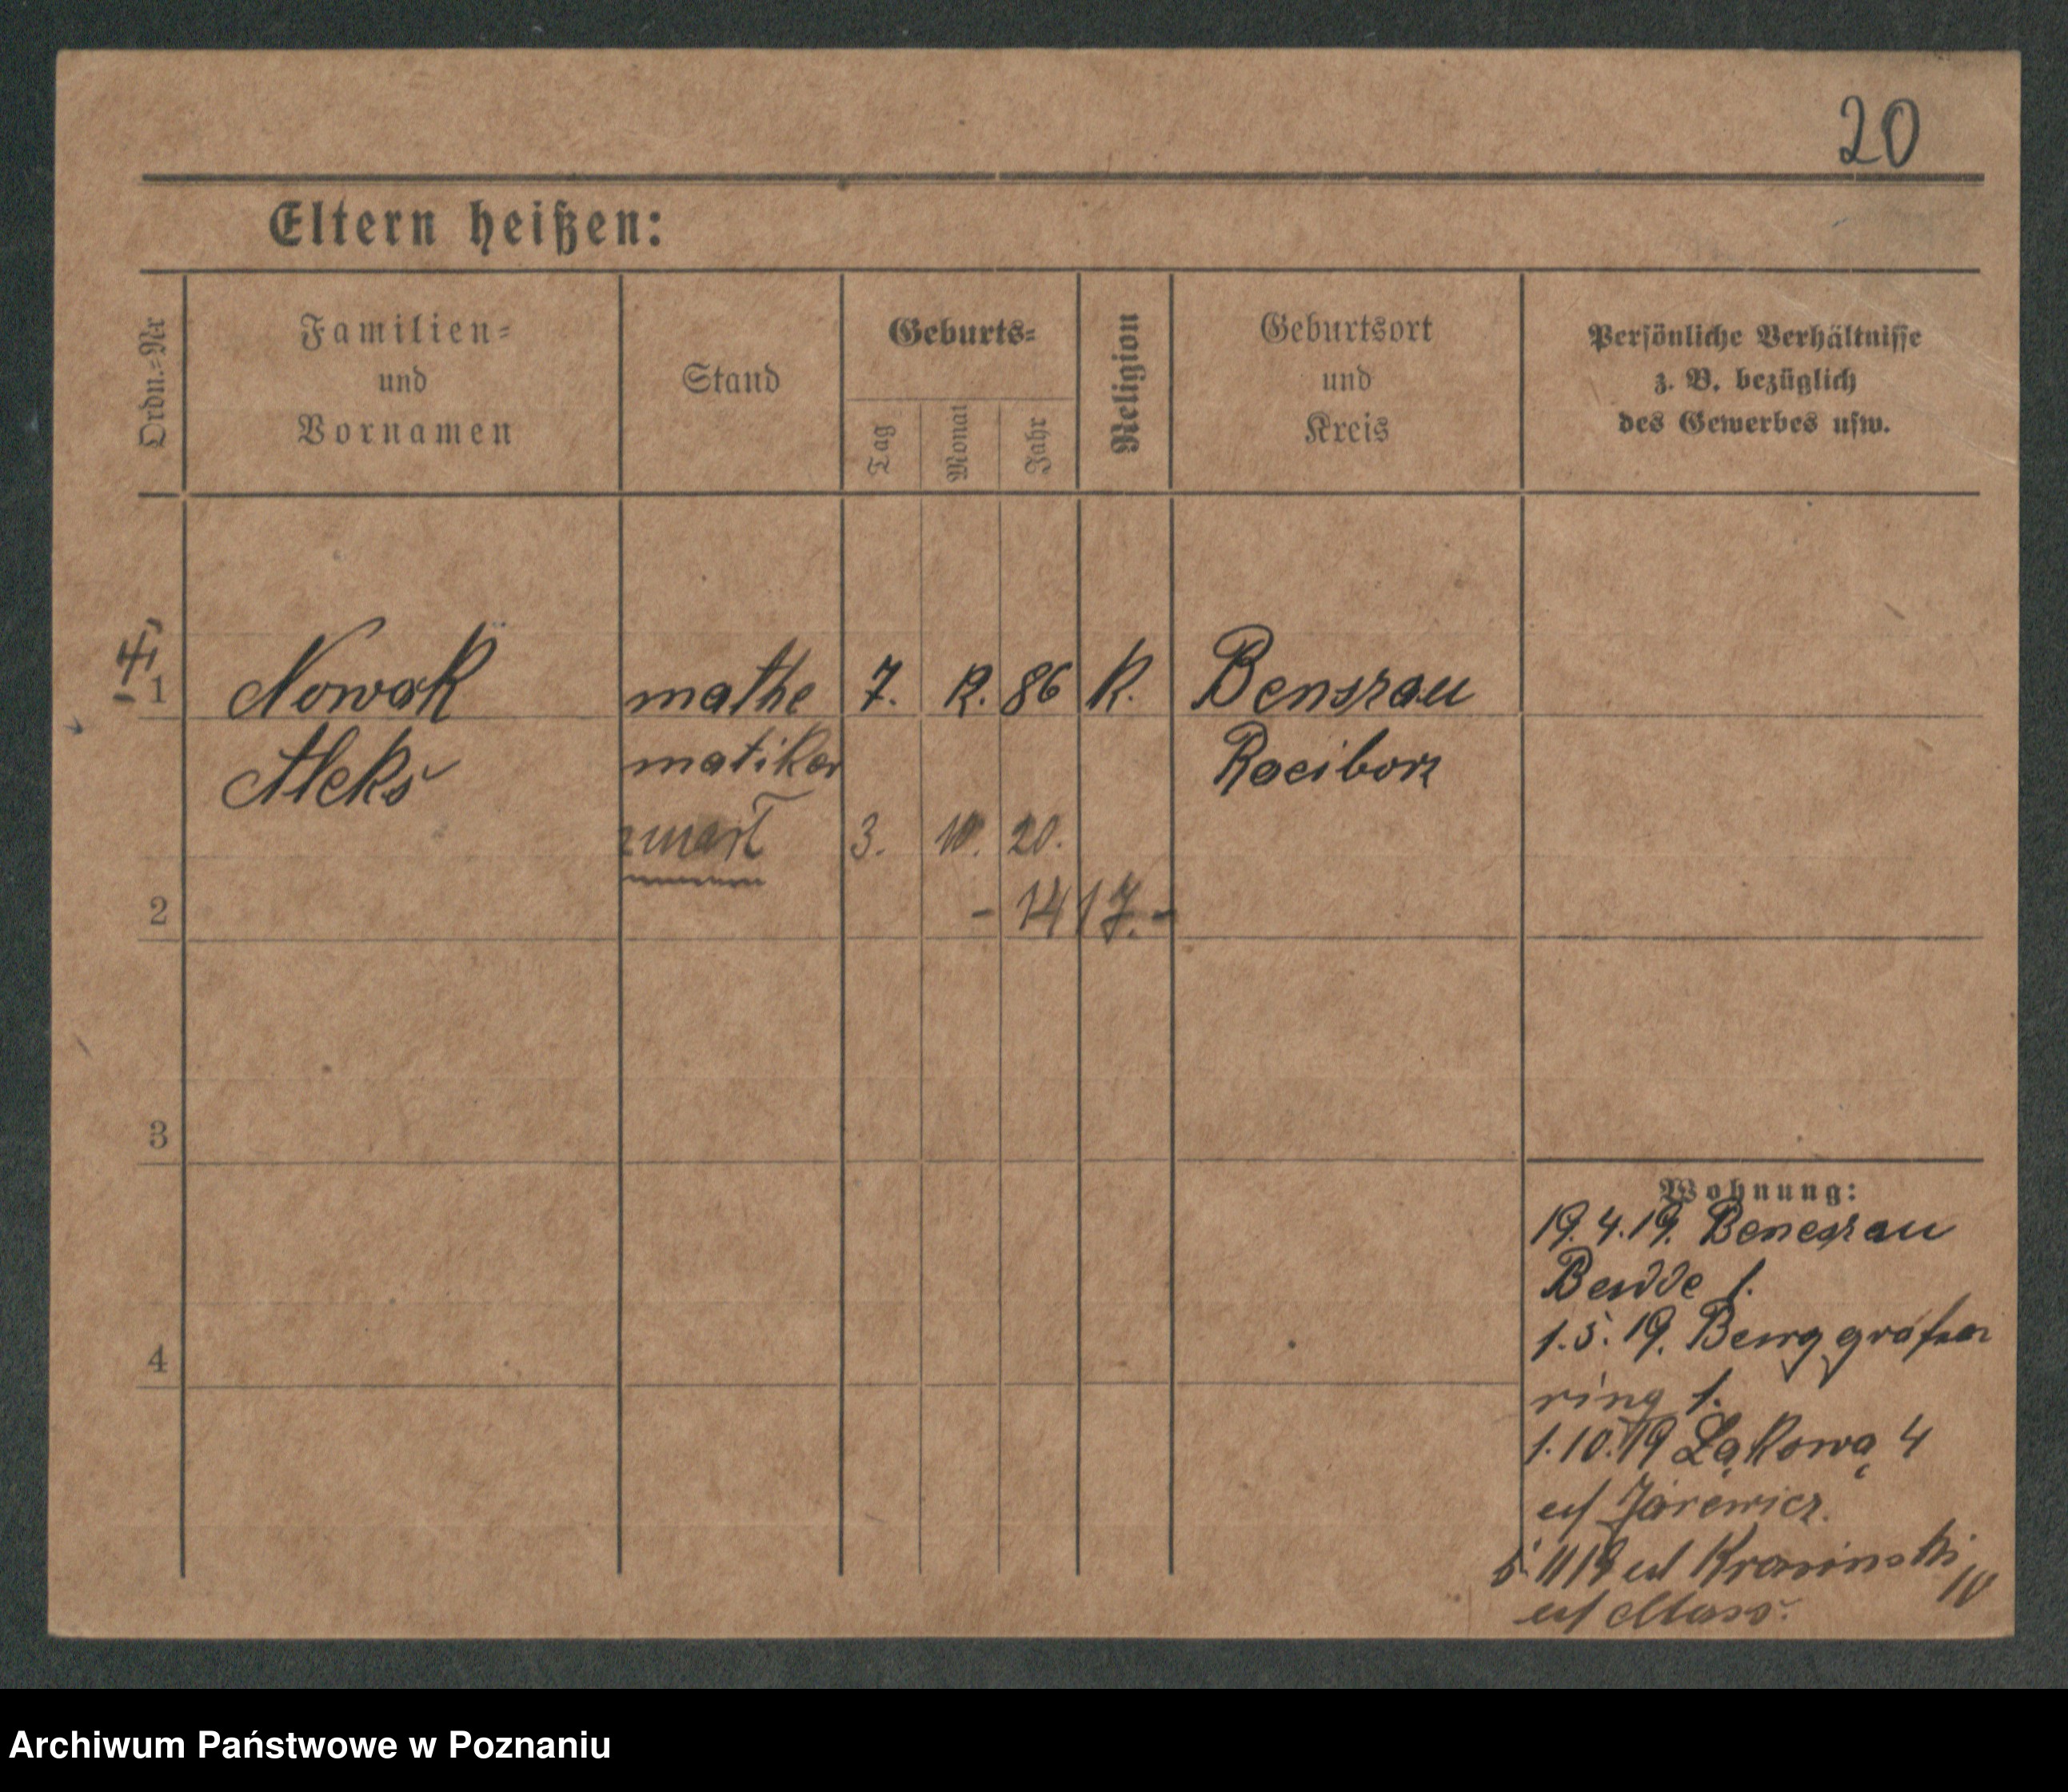 20
Eltern heißen:
Ordn.-Nr
Familien-
und
Vornamen
Stand
Geburts-
Tag
Monat
Jahr
Religion
Geburtsort
und
Kreis
Persönliche Verhältnisse
z. B. bezüglich
des Gewerbes usw.
1 Nowak mathe 7. 86 K. Bensrau
Aleks matiker Raciborz
zmarł 3. 10. 20.
2 - 1417. -
3
4
Wohnung:
19.4.19. Benesrau
1.
1.5.19. Berggrafen
ring 1.
1.10.19 Łąkowa 4
u/ Jarewicz.
11 19 ul Krasinski
u/ Mass.
Archiwum Państwowe w Poznaniu